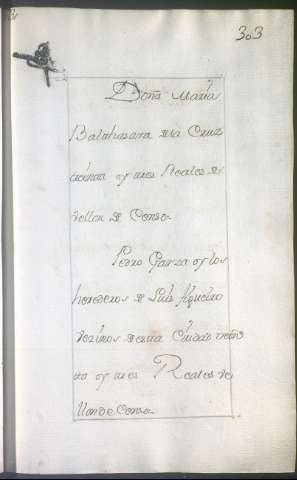 303
Doña Maria
Balthasara de la Cruz
treinta y tres Reales de
vellon de Censo
Pedro Garza y los
herederos de Luis figueiro
vezinos de esta Ciudad
y tres Reales de
de Censo